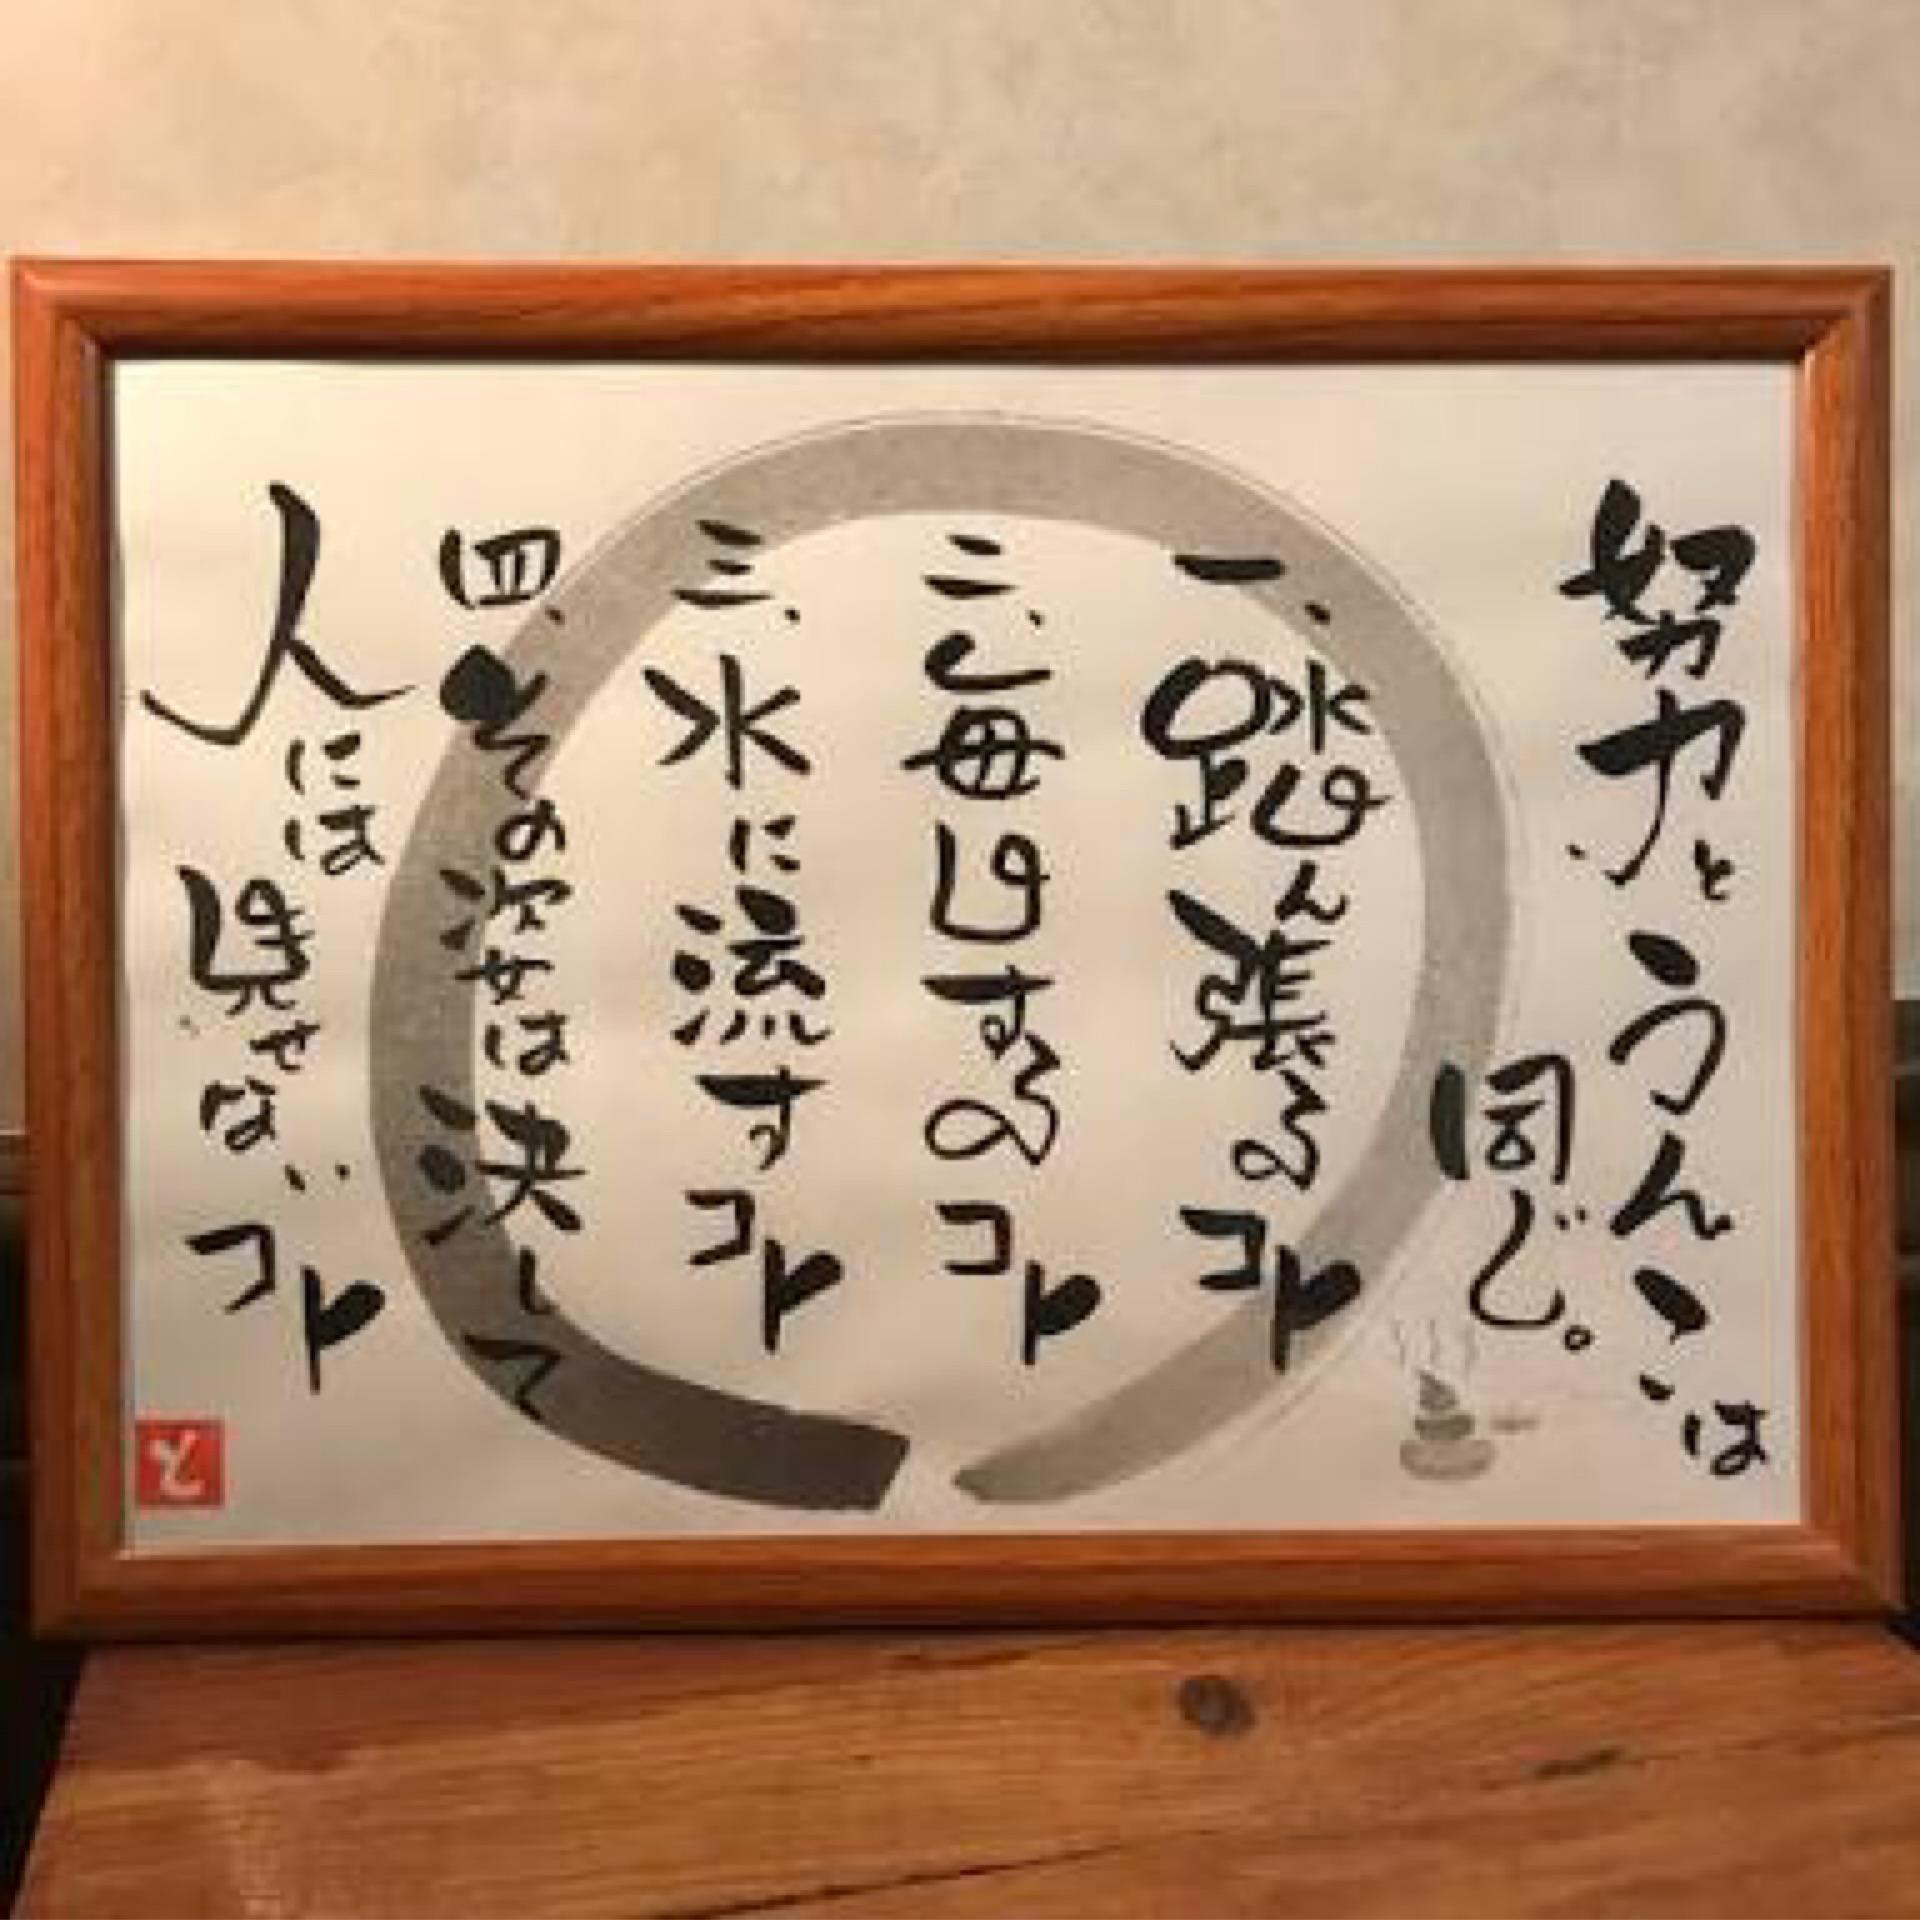 努力とうんこは
同じ。
一、踏ん張るコト
二、毎日するのコト
三、水に流すコト
四、その次女は決して
人には見せないコト
と